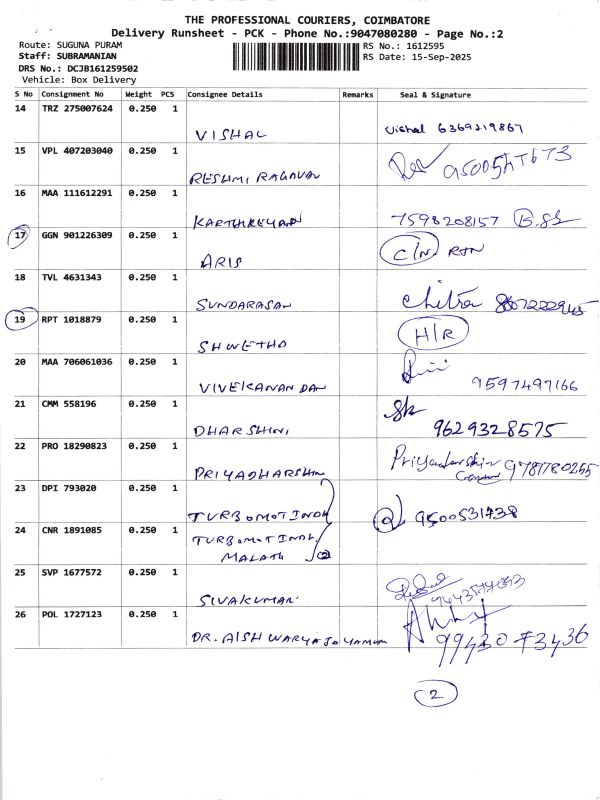 THE PROFESSIONAL COURIERS, COIMBATORE
Delivery Runsheet - PCK - Phone No.:9047080280 - Page No.:2
Route: SUGUNA PURAM RS No.: 1612595
Staff: SUBRAMANIAN RS Date: 15-Sep-2025
DRS No.: DCJB161259502
Vehicle: Box Delivery
S No Consignment No Weight PCS Consignee Details Remarks Seal & Signature
14 TRZ 275007624 0.250 1
VISHAL Vishal 6369219867
15 VPL 407203040 0.250 1
RESHMI RAGAVAN
16 MAA 111612291 0.250 1
KARTHIKEYAN 7598208157
17 GGN 901226309 0.250 1
ARIS C/N RTN
18 TVL 4631343 0.250 1
SUNDARASAN Chitra
19 RPT 1018879 0.250 1
SHWETHA H/R
20 MAA 706061036 0.250 1
VIVEKANANDAN 9597497166
21 CMM 558196 0.250 1
DHARSHINI 9629328575
22 PRO 18290823 0.250 1
PRIYADHARSHINI Priyadarshini 9787780255
23 DPI 793020 0.250 1
TURBOMOT INDA 9500531738
24 CNR 1891085 0.250 1
TURBOMOT INDA
25 SVP 1677572 0.250 1
SIVAKUMAR
26 POL 1727123 0.250 1
DR. AISHWARYA 99430 73436
2